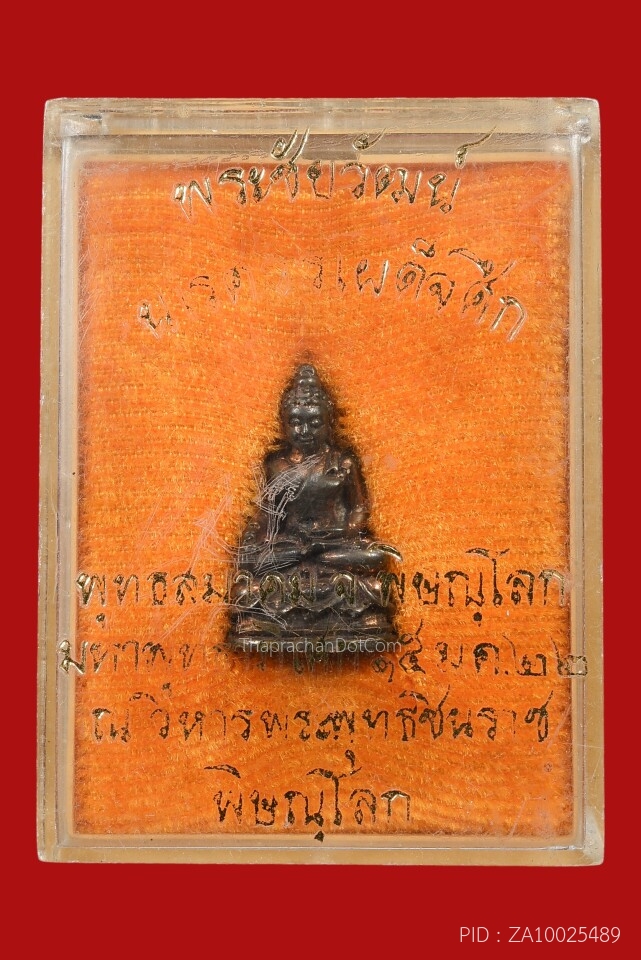 พระชัยวัฒน์
เผด็จศึก
พุทธสมาคม จ. พิษณุโลก
ThaprachanDotCom
๑๕ ม.ค. ๒๒
ณ วิหารพระพุทธชินราช
พิษณุโลก
PID : ZA10025489